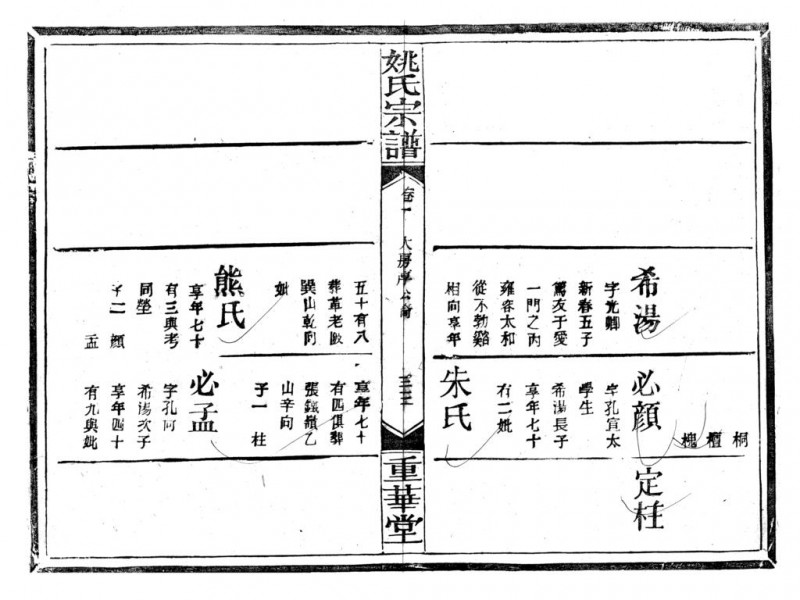 姚氏宗譜
卷一
重華堂
希湯
字光卿
新春五子
篤友子愛
一門之內
雍容太和
從不勃谿
相向享年
五十有八
葬革老
巽山乾向
妣
熊氏
享年七十
有三與考
同塋
子二 顏
孟
桐
檀
槐
必顏
字孔宜太
學生
希湯長子
享年七十
有二妣
朱氏
享年七十
有四俱葬
張鐵嶺乙
山辛向
子一 柱
必孟
字孔
希湯次子
享年四十
有九與妣
定柱